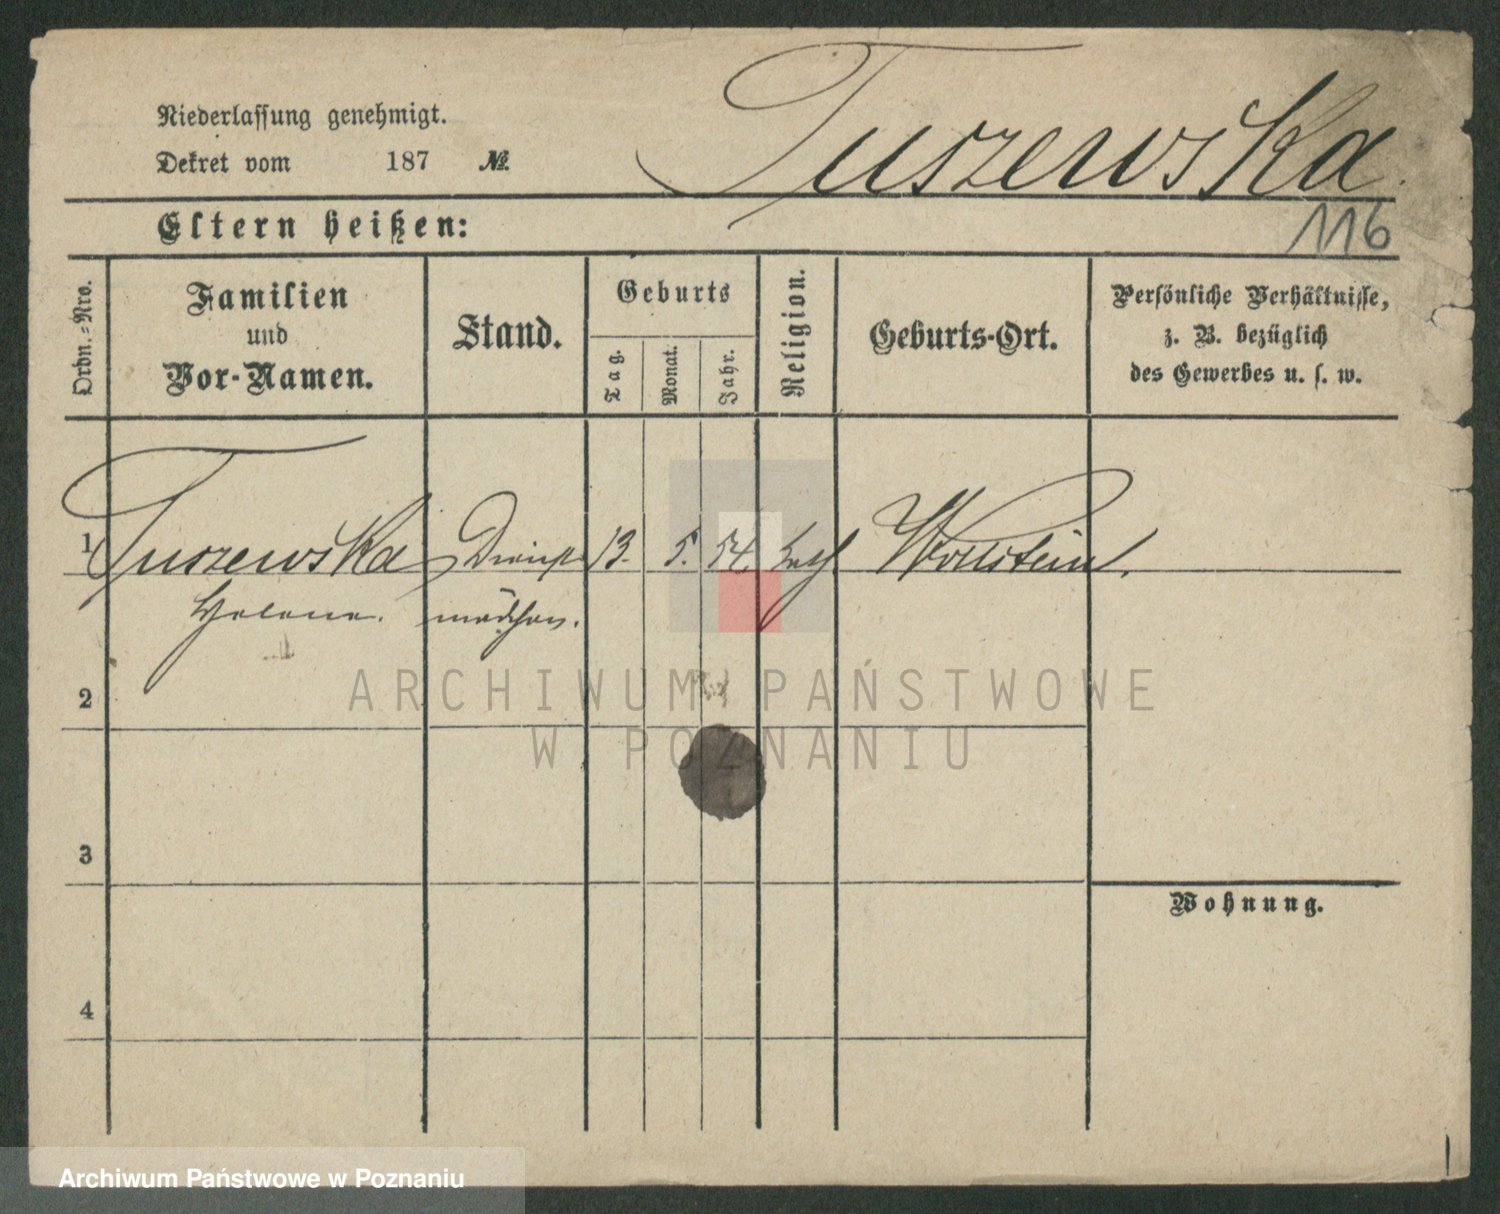 Tuszewska
Niederlassung genehmigt.
Dekret vom 187 №
Eltern heißen:
116
Ordn.-Nro.
Familien
und
Vor-Namen.
Stand.
Geburts
Tag.
Monat.
Jahr.
Religion.
Geburts-Ort.
Persönliche Verhältnisse,
z. B. bezüglich
des Gewerbes u. s. w.
1 Tuszewska Dienst 13. 5. 54. kath Wollstein.
Helene. mädchen.
2
ARCHIWUM PAŃSTWOWE
W POZNANIU
3
Wohnung.
4
Archiwum Państwowe w Poznaniu